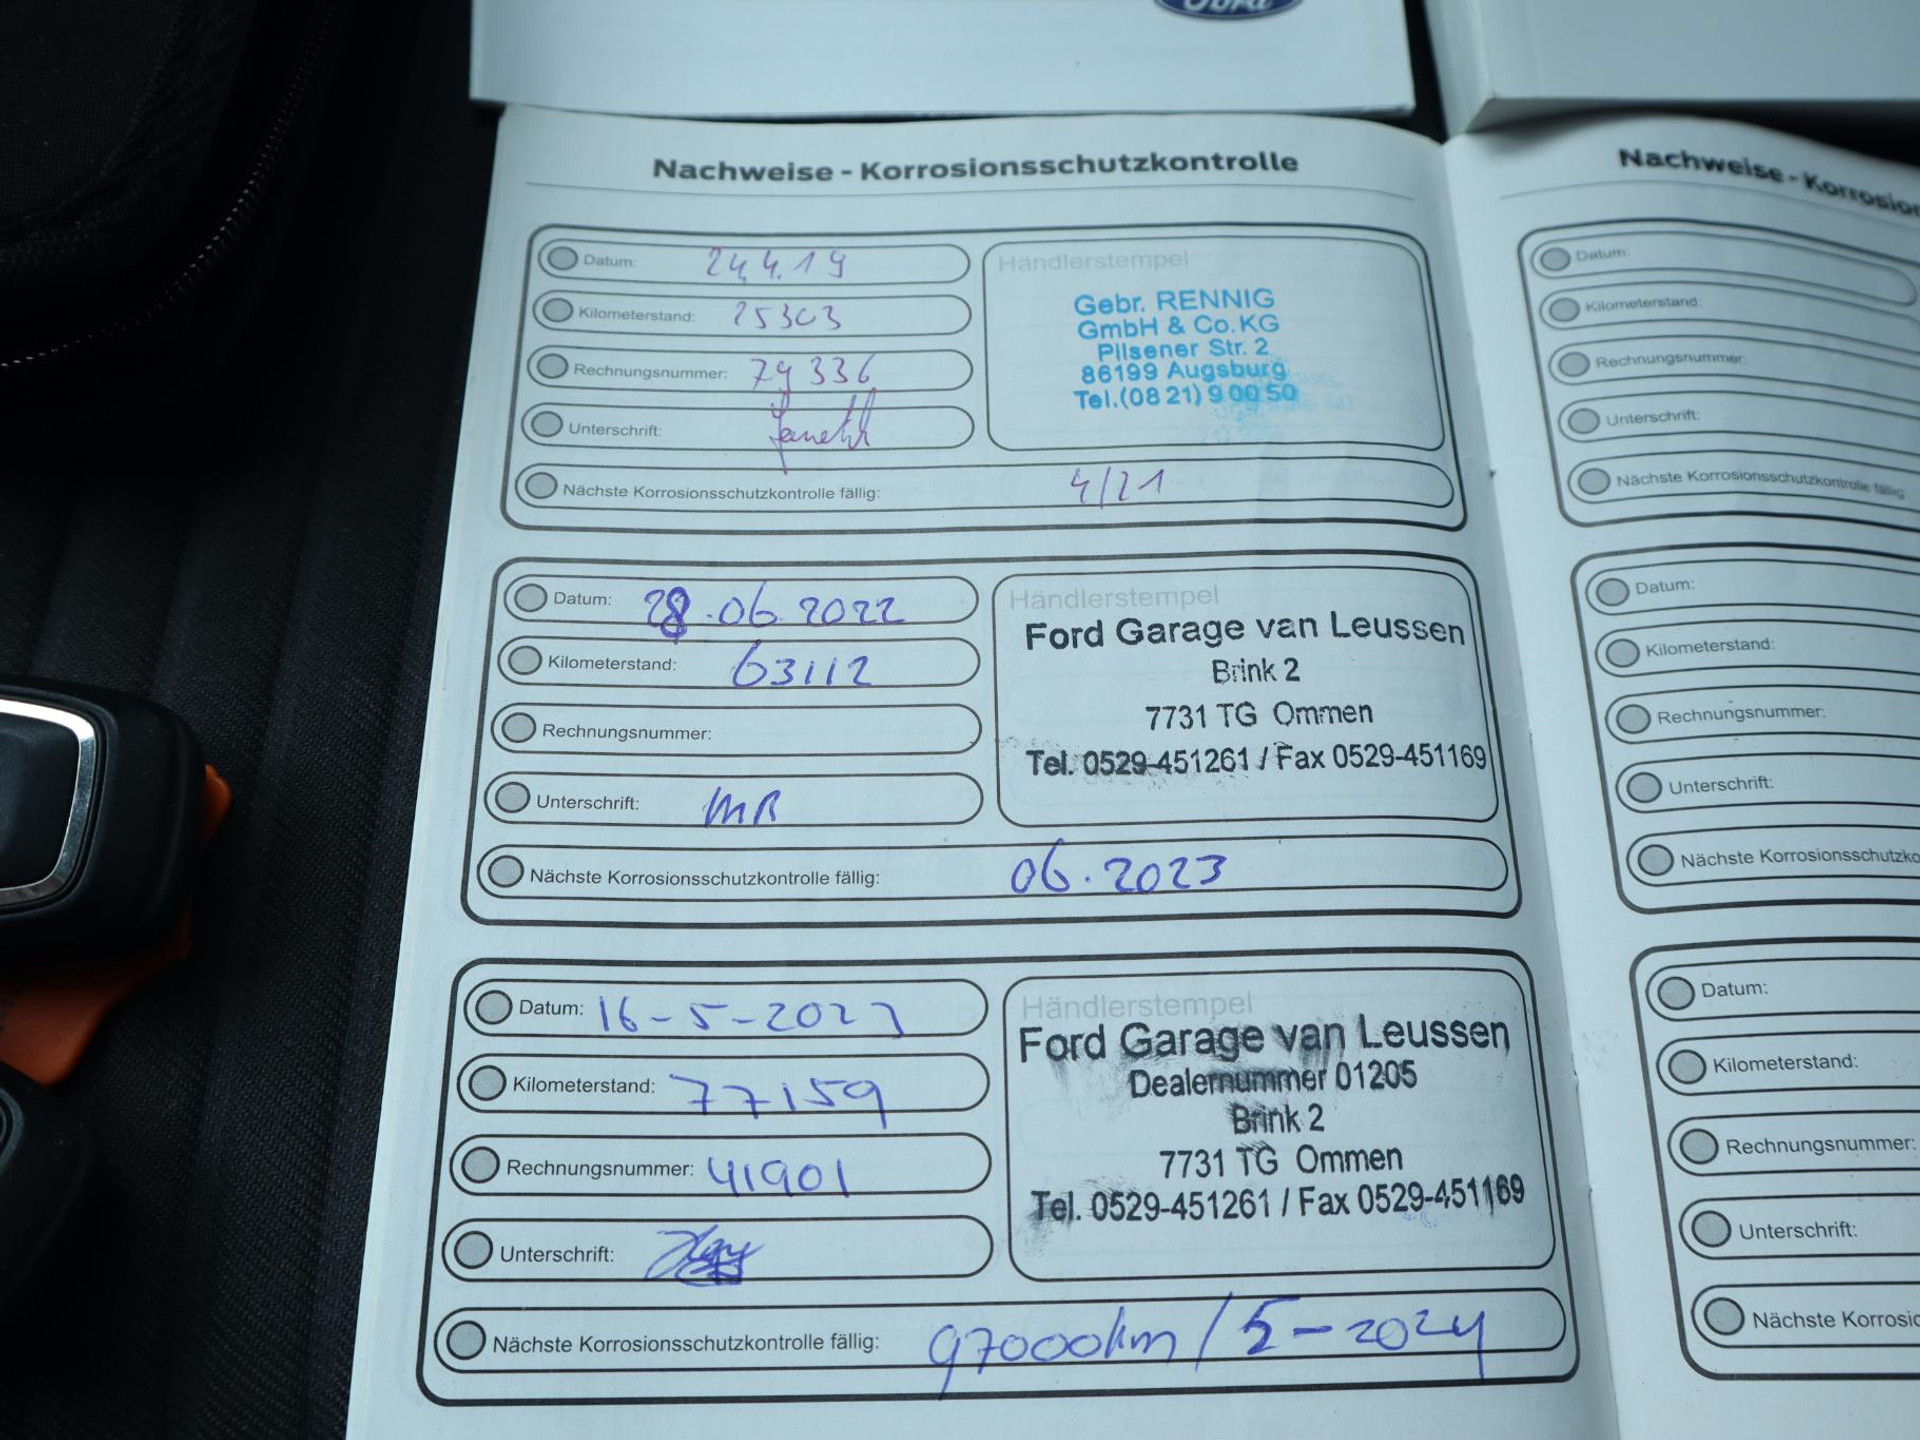 Ford
Nachweise - Korrosionsschutzkontrolle
Datum: 24.4.19
Kilometerstand: 25303
Rechnungsnummer: 79336
Unterschrift:
Händlerstempel
Gebr. RENNIG
GmbH & Co. KG
Pilsener Str. 2
86199 Augsburg
Tel.(08 21) 9 00 50
Nächste Korrosionsschutzkontrolle fällig: 4/21
Datum: 28.06.2022
Kilometerstand: 63112
Rechnungsnummer:
Unterschrift: MR
Händlerstempel
Ford Garage van Leussen
Brink 2
7731 TG Ommen
Tel. 0529-451261 / Fax 0529-451169
Nächste Korrosionsschutzkontrolle fällig: 06.2023
Datum: 16-5-2023
Kilometerstand: 77159
Rechnungsnummer: 41901
Unterschrift:
Händlerstempel
Ford Garage van Leussen
Dealernummer 01205
Brink 2
7731 TG Ommen
Tel. 0529-451261 / Fax 0529-451169
Nächste Korrosionsschutzkontrolle fällig: 97000km / 5-2024
Nachweise - Korrosion
Datum:
Kilometerstand:
Rechnungsnummer:
Unterschrift:
Nächste Korrosionsschutzkontrolle fällig:
Datum:
Kilometerstand:
Rechnungsnummer:
Unterschrift:
Nächste Korrosionsschutzko
Datum:
Kilometerstand:
Rechnungsnummer:
Unterschrift:
Nächste Korrosio